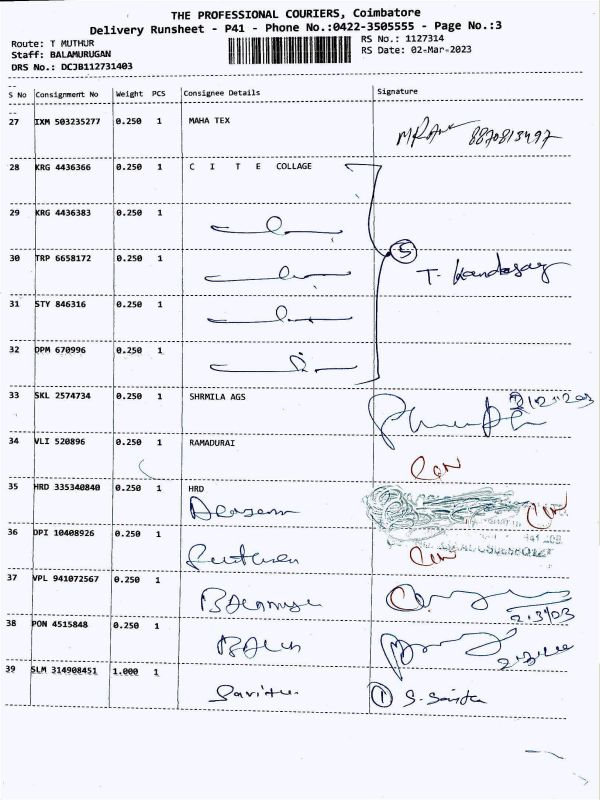 THE PROFESSIONAL COURIERS, Coimbatore
Delivery Runsheet - P41 - Phone No.:0422-3505555 - Page No.:3
Route: T MUTHUR
RS No.: 1127314
Staff: BALAMURUGAN
RS Date: 02-Mar-2023
DRS No.: DCJB112731403
S No Consignment No Weight PCS Consignee Details Signature
27 IXM 503235277 0.250 1 MAHA TEX 8870813497
28 KRG 4436366 0.250 1 C I T E COLLAGE
29 KRG 4436383 0.250 1
30 TRP 6658172 0.250 1 5
T.
31 STY 846316 0.250 1
32 DPM 670996 0.250 1
33 SKL 2574734 0.250 1 SHRMILA AGS
34 VLI 520896 0.250 1 RAMADURAI
35 HRD 335340840 0.250 1 HRD
36 DPI 10408926 0.250 1
37 VPL 941072567 0.250 1
38 PON 4515848 0.250 1
39 SLM 314908451 1.000 1
1 S.